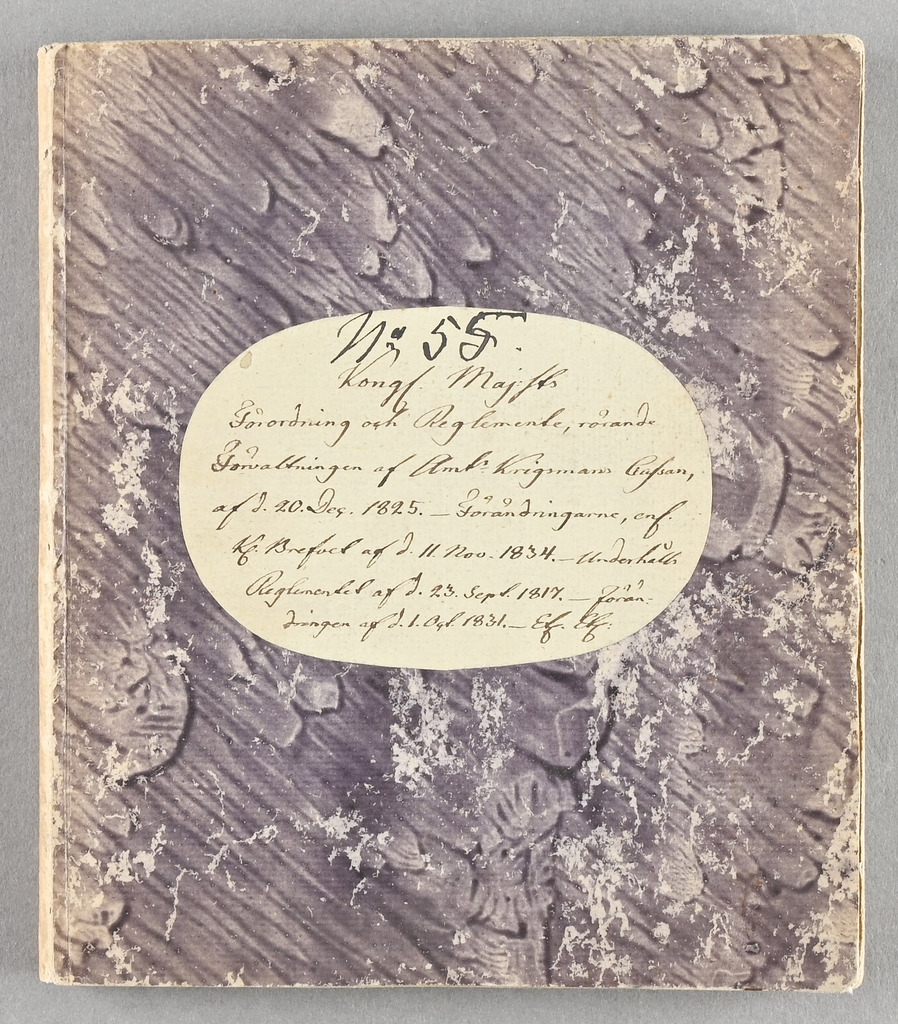 No 55.
Kongl. Maj:sts
Förordning och Reglemente, rörande
Förvaltningen af Amts Krigsmans Cassan,
af d. 20. Dec. 1825. – Förändringarne, enl.
K. Brefvet af d. 11 Nov. 1834. – Underhålls
Reglementet af d. 23. Sept. 1817. – Förän-
dringen af d. 1. Oct. 1831. –